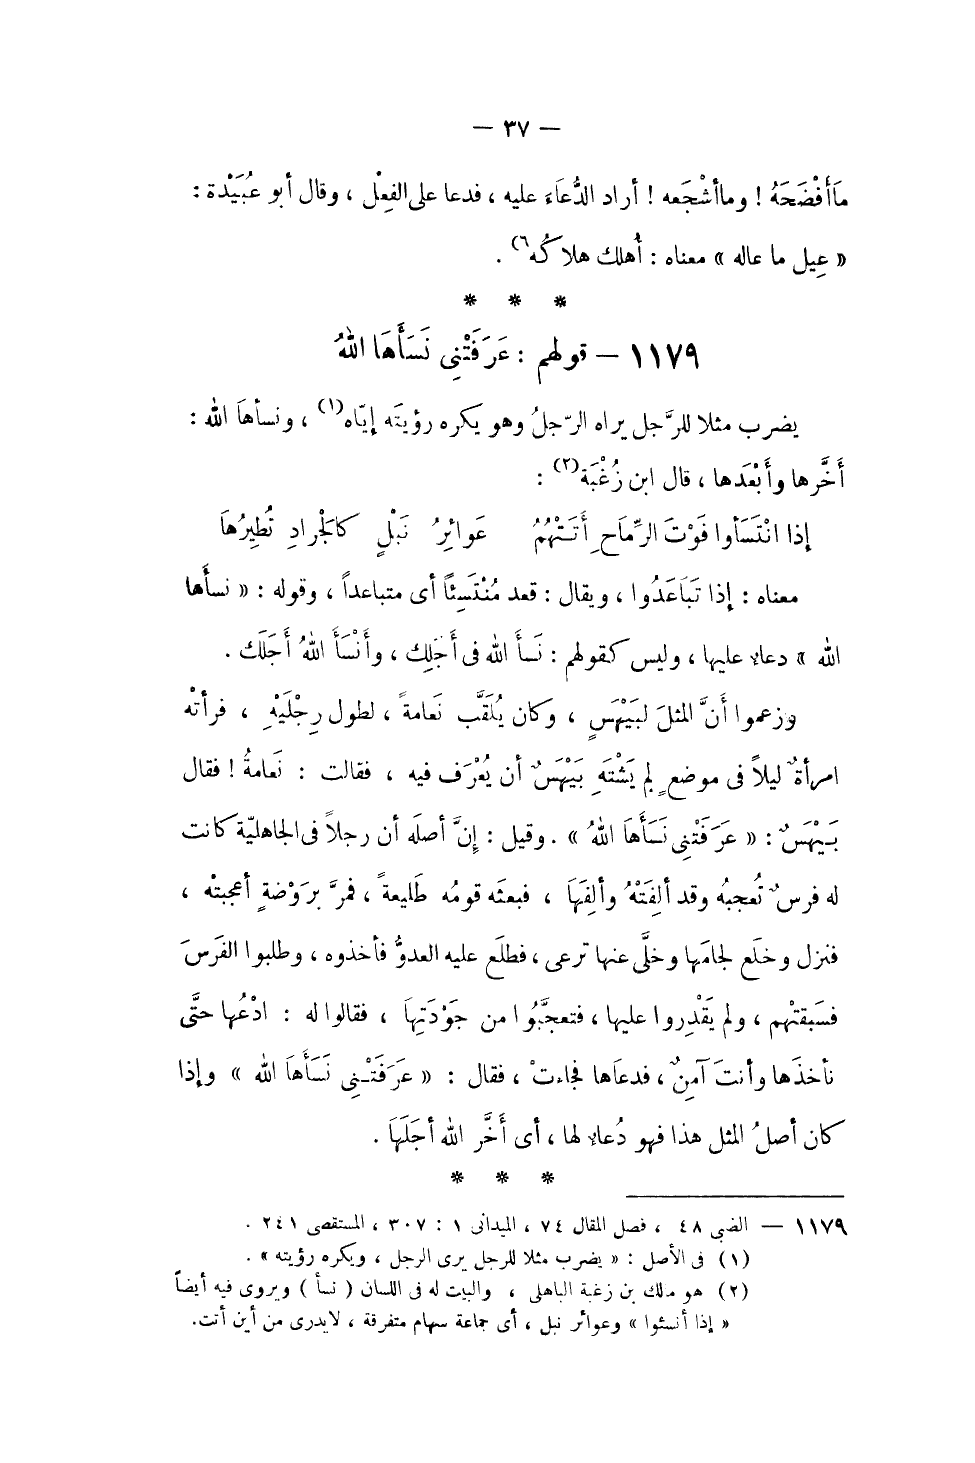 — ٣٧ —
مَاأَفْضَحَهُ ! وماأشْجَعه ! أراد الدُّعَاءَ عليه ، فدعا على الفِعْل ، وقال أبو عُبَيْدة :
« عِيل ما عاله » معناه : أُهلك هلاكُه(٦) .
* * *
١١٧٩ – قولهم : عَرَفَتْنِى نَسَأَهَا اللهُ
يضرب مثلا للرَّجل يراه الرّجلُ وهو يكره رؤيتَه إيّاه(١) ، ونسأهاَ الله :
أَخَّرها وأَبْعَدها ، قال ابن زُغْبَة(٢) :
إذا انْتَسَأوا فَوْتَ الرِّمَاحِ أَتَتْهُمُ عَوائِرُ نَبْلٍ كالجْرادِ تُطِيرُهَا
معناه : إذا تَبَاعَدُوا ، ويقال : قعد مُنْتَسِئاً أى متباعداً ، وقوله : « نسأَها
الله » دعاء عليها ، وليس كقولهم : نَسأَ الله فى أَجَلِك ، وأَنْسَأَ اللهُ أَجَلَك .
وزعموا أَنَّ المثلَ لبَيْهَسٍ ، وكان يُلَقَّب نَعامةً ، لطول رِجْلَيْهِ ، فرأتْه
امرأةٌ ليلاً فى موضعٍ لم يَشْتَهِ بَيْهَسٌ أن يُعْرَف فيه ، فقالت : نَعامةُ ! فقال
بَيْهَسٌ : « عَرَفَتْنِى نَسَأَهَا اللهُ » . وقيل : إنَّ أصلَه أن رجلاً فى الجاهليّة كانت
له فرسٌ تُعجبُه وقد ألِفَتْهُ وألِفَهَا ، فبعثَه قومُه طَليعةً ، فمرَّ برَوْضةٍ أعجبتْه ،
فنزل وخلَع لجامَها وخلَّى عنها ترعى ، فطلَع عليه العدوُّ فأخذوه ، وطلبوا الفَرسَ
فسَبقتْهم ، ولم يَقْدِروا عليها ، فتعجَّبُوا من جَوْدَتِهاَ ، فقالوا له : ادْعُها حتَّى
نأخذَها وأنتَ آمنٌ ، فدعاَها فجاءتْ ، فقال : « عَرَفَتْنِى نَسَأَهاَ الله » وإذا
كان أصلُ المثل هذا فهو دُعاء لها ، أى أَخَّر الله أجَلَهَا .
* * *
١١٧٩ — الضبى ٤٨ ، فصل المقال ٧٤ ، الميدانى ١ : ٣٠٧ ، المستقصى ٢٤١ .
(١) فى الأصل : « يضرب مثلا للرجل يرى الرجل ، ويكره رؤيته » .
(٢) هو مالك بن زغبة الباهلى ، والبيت له فى اللسان ( نسأ ) ويروى فيه أيضاً
« إذا أنسئوا » وعوائر نبل ، أى جماعة سهام متفرقة ، لايدرى من أين أتت.